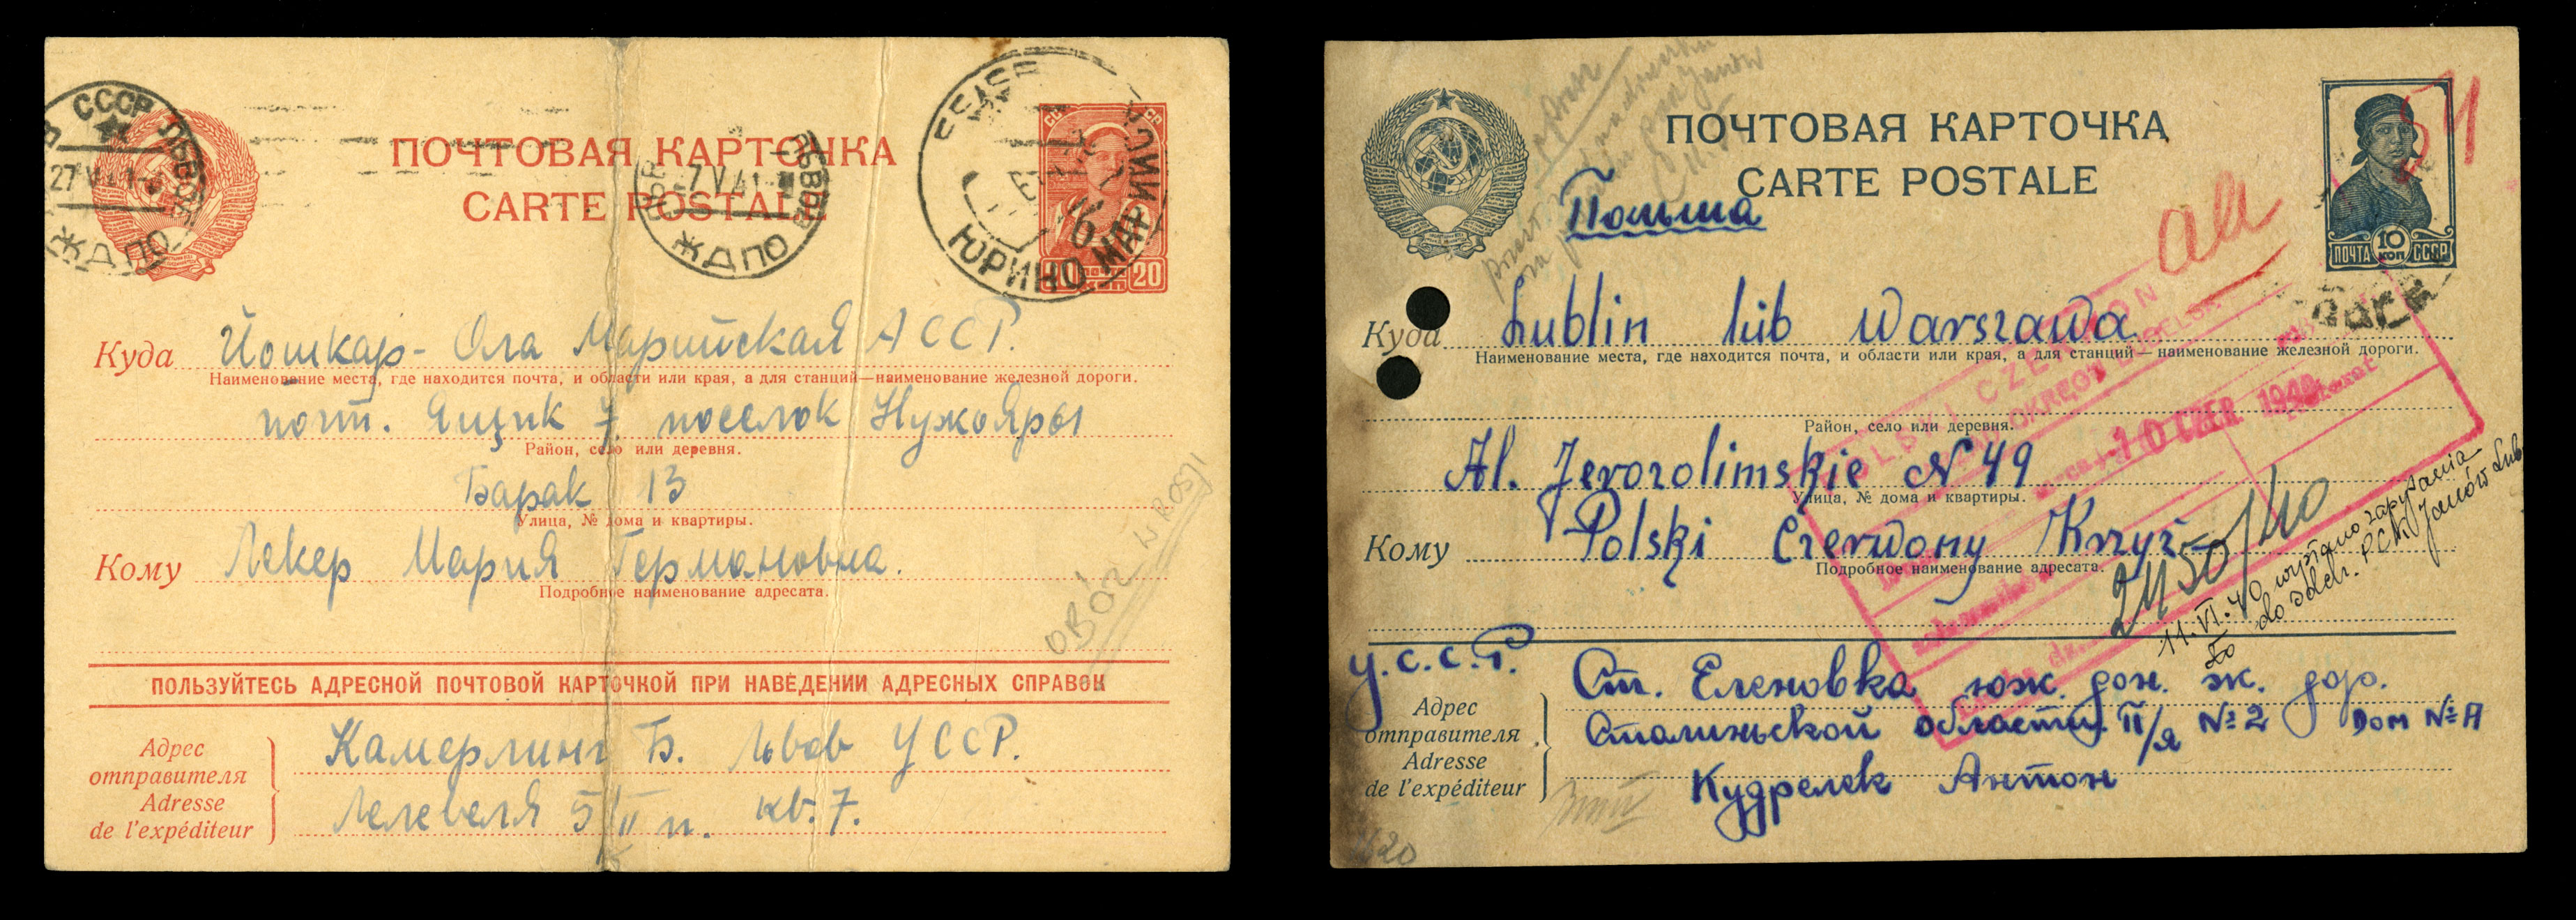 СССР
ЛЬВОВ
27 V 41
ЖДПО
ПОЧТОВАЯ КАРТОЧКА
CARTE POSTALE
27 V 41
ЛЬВОВ
ЖДПО
ЮРИНО МАРИЙСК
20
Куда Йошкар-Ола Марийская АССР.
Наименование места, где находится почта, и области или края, а для станций—наименование железной дороги.
почт. Ящик 7. поселок НужоЯры
Район, село или деревня.
Барак 13
Улица, № дома и квартиры.
Кому Лекер Мария Германовна.
Подробное наименование адресата.
OBÓZ W ROSJI
ПОЛЬЗУЙТЕСЬ АДРЕСНОЙ ПОЧТОВОЙ КАРТОЧКОЙ ПРИ НАВЕДЕНИИ АДРЕСНЫХ СПРАВОК
Адрес
отправителя
Adresse
de l'expéditeur
Камерлинг Б. Львов УССР.
Лелевеля 5 II п. кв. 7.
ПОЧТОВАЯ КАРТОЧКА
CARTE POSTALE
51
Польша
10
КОП
ПОЧТА СССР
Куда Lublin lub Warszawa
Наименование места, где находится почта, и области или края, а для станций — наименование железной дороги.
Район, село или деревня.
Al. Jerozolimskie N 49
Улица, № дома и квартиры.
Кому Polski Czerwony Krzyż
Подробное наименование адресата.
POLSKI CZERWON
OKRĘGU LUBELSK
10 CZER. 1940
2450/40
11. VI. 40 wysłano zapytanie
do Deleg. P.C.K. Janów Lub.
У.С.С.Р.
Ст. Еленовка юж. дон. ж. дор.
Сталинской области П/я № 2 Дом № А
Кудрелек Антон
Адрес
отправителя
Adresse
de l'expéditeur